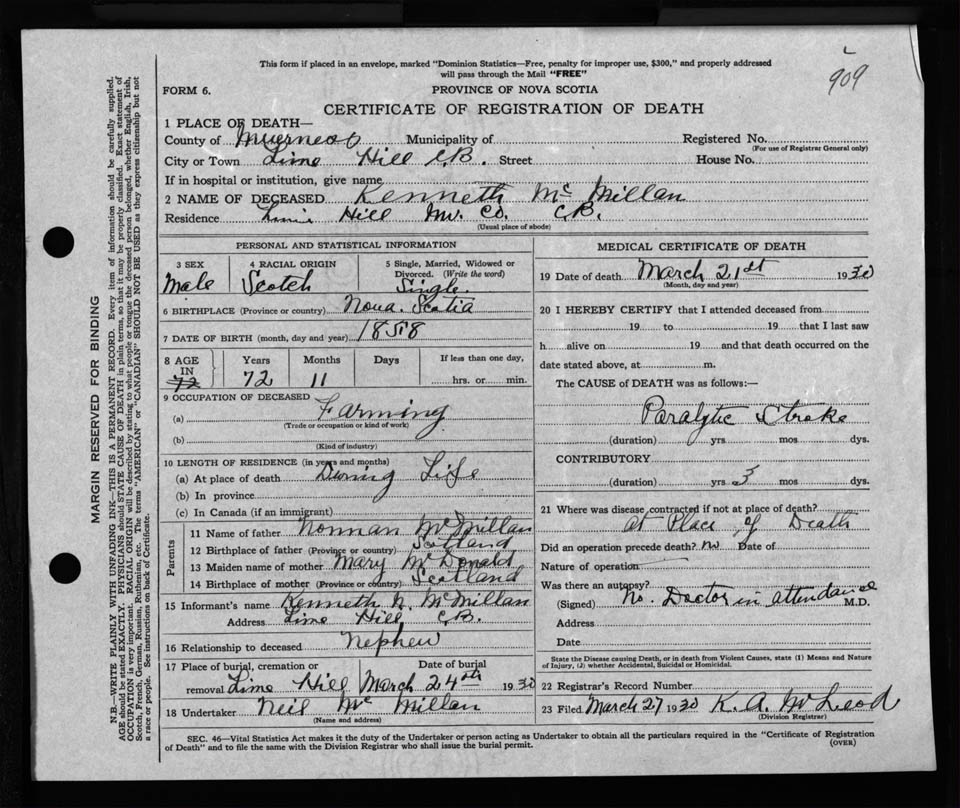 909
This form if placed in an envelope, marked "Dominion Statistics—Free, penalty for improper use, $300," and properly addressed
will pass through the Mail "FREE"
FORM 6.
PROVINCE OF NOVA SCOTIA
CERTIFICATE OF REGISTRATION OF DEATH
1 PLACE OF DEATH—
County of Inverness Municipality of Registered No.
(For use of Registrar General only)
City or Town Lime Hill C.B. Street House No.
If in hospital or institution, give name
2 NAME OF DECEASED Kenneth Mc Millan
Residence Lime Hill Inv. Co. C.B.
(Usual place of abode)
PERSONAL AND STATISTICAL INFORMATION
3 SEX 4 RACIAL ORIGIN 5 Single, Married, Widowed or
Divorced. (Write the word)
Male Scotch Single.
6 BIRTHPLACE (Province or country) Nova. Scotia
7 DATE OF BIRTH (month, day and year) 1858
8 AGE Years Months Days If less than one day,
IN
72 72 11 hrs. or min.
9 OCCUPATION OF DECEASED
(a) Farming
(Trade or occupation or kind of work)
(b)
(Kind of industry)
10 LENGTH OF RESIDENCE (in years and months)
(a) At place of death During Life
(b) In province
(c) In Canada (if an immigrant)
Parents
11 Name of father Norman McMillan
12 Birthplace of father (Province or country) Scotland
13 Maiden name of mother Mary McDonald
14 Birthplace of mother (Province or country) Scotland
15 Informant's name Kenneth N. McMillan
Address Lime Hill C.B.
16 Relationship to deceased Nephew
17 Place of burial, cremation or Date of burial
removal Lime Hill March 24th 1930
18 Undertaker Neil Mc Millan
(Name and address)
MEDICAL CERTIFICATE OF DEATH
19 Date of death March 21st 1930
(Month, day and year)
20 I HEREBY CERTIFY that I attended deceased from
19 to 19 that I last saw
h alive on 19 and that death occurred on the
date stated above, at m.
The CAUSE of DEATH was as follows:—
Paralytic Stroke
(duration) yrs mos dys.
CONTRIBUTORY
(duration) yrs 3 mos dys.
21 Where was disease contracted if not at place of death?
at Place of Death
Did an operation precede death? no Date of
Nature of operation
Was there an autopsy?
(Signed) No. Doctor in attendance M.D.
Address
Date
State the Disease causing Death, or in death from Violent Causes, state (1) Means and Nature
of Injury, (2) whether Accidental, Suicidal or Homicidal.
22 Registrar's Record Number
23 Filed March 27 1930 K. A. McLeod
(Division Registrar)
SEC. 46—Vital Statistics Act makes it the duty of the Undertaker or person acting as Undertaker to obtain all the particulars required in the "Certificate of Registration
of Death" and to file the same with the Division Registrar who shall issue the burial permit. (OVER)
MARGIN RESERVED FOR BINDING
N.B.—WRITE PLAINLY WITH UNFADING INK—THIS IS A PERMANENT RECORD. Every item of information should be carefully supplied.
AGE should be stated EXACTLY. PHYSICIANS should STATE CAUSE OF DEATH in plain terms, so that it may be properly classified. Exact statement of
OCCUPATION is very important. RACIAL ORIGIN will be described by stating to what people or tongue the deceased person belonged, whether English, Irish,
Scotch, French, German, Russian, Ruthenian, etc. The terms "AMERICAN" or "CANADIAN" SHOULD NOT BE USED as they express citizenship but not
a race or people. See instructions on back of Certificate.